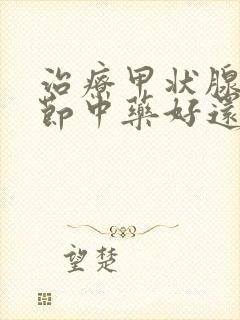 治療甲状腺
節中藥好還
望楚